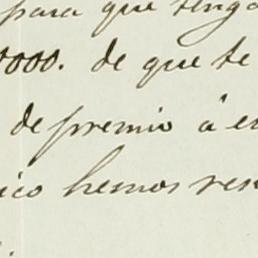 para que tenga
0000. de que te
de premio á
ico hemos